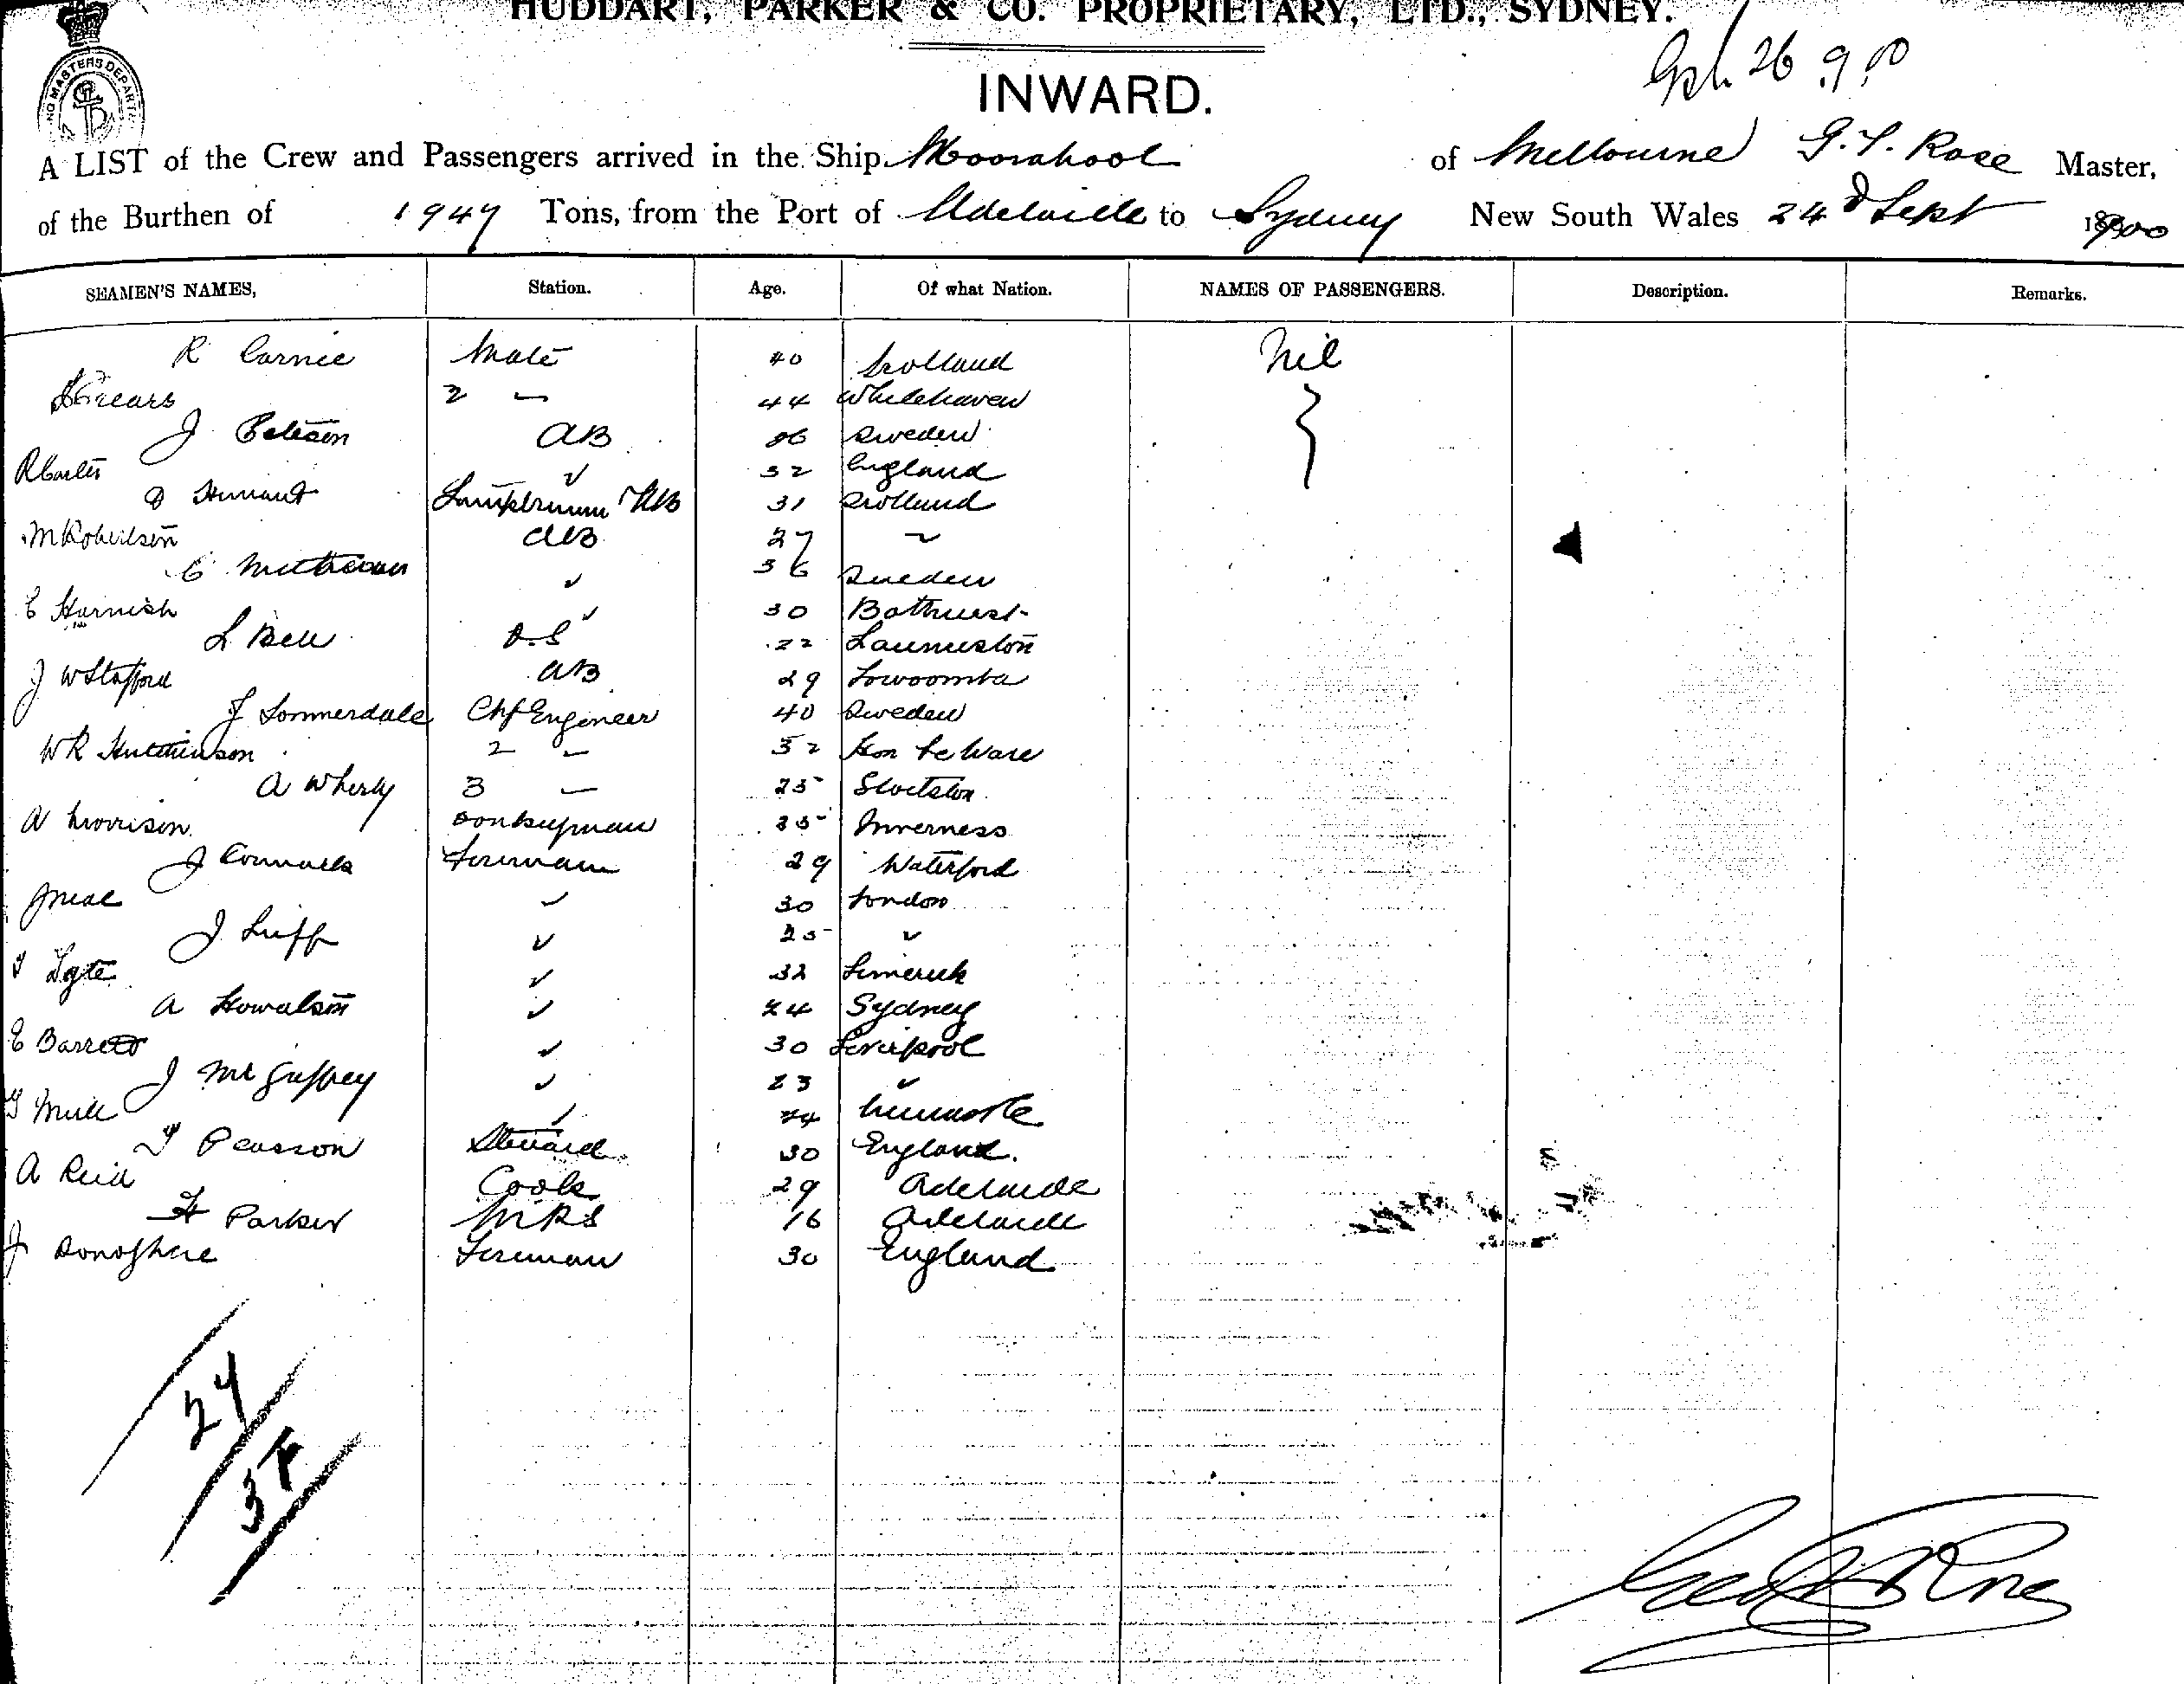 HUDDART, PARKER & CO. PROPRIETARY, LTD., SYDNEY.
26.9.00
INWARD.
A LIST of the Crew and Passengers arrived in the Ship Moorabool of Melbourne G. T. Rose Master,
of the Burthen of 1947 Tons, from the Port of Adelaide to Sydney New South Wales 24d Sept 1900
SEAMEN'S NAMES, Station. Age. Of what Nation. NAMES OF PASSENGERS. Description. Remarks.
R Carnie Mate 40 Scotland Nil
2 44 Whitehaven
J Peterson AB 36 Sweden
R Carter 32 England
Lamptrimmer AB 31 Scotland
M Robertson AB 27
C 36 Sweden
E Harnish 30 Bathurst
L Bell O.S 22 Launceston
J W Stafford AB 29 Towoomba
J Sommerdale Chf Engineer 40 Sweden
W R Hutchinson 2 32
A Wherly 3 25
A Morrison Donkeyman 35 Inverness
J Connors Fireman 29 Waterford
J Neal 30 London
J Luff 25
T Lyte 32 Limerick
A Howalson 24 Sydney
E Barrett 30 Liverpool
J McGuffrey 23
24 Newcastle
T Pearson Steward 30 England.
A Reid Cook 29 Adelaide
H Parker MRS 16 Adelaide
J Donoghue Fireman 30 England
24